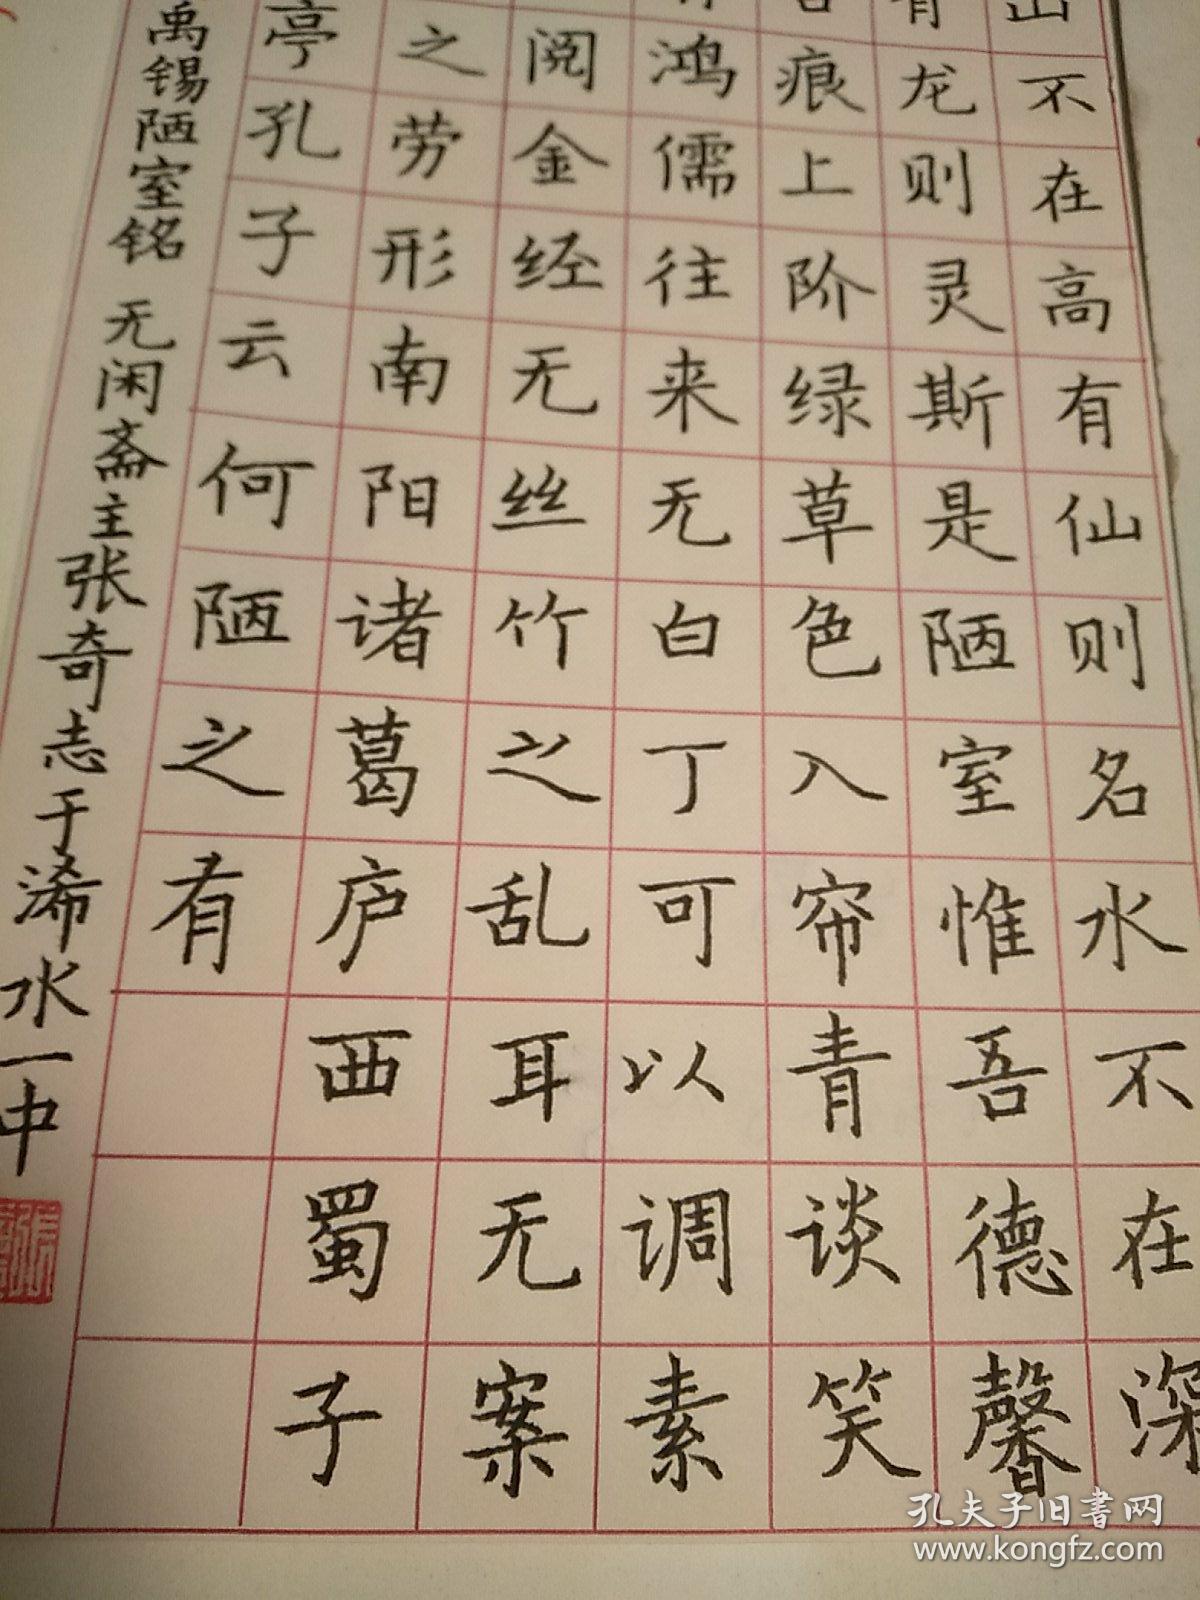 山不在高有仙则名水不在深
有龙则灵斯是陋室惟吾德馨
痕上阶绿草色入帘青谈笑
鸿儒往来无白丁可以调素
阅金经无丝竹之乱耳无案
之劳形南阳诸葛庐西蜀子
亭孔子云何陋之有
禹锡陋室铭 无闲斋主张奇志于浠水一中
孔夫子旧书网
www.kongfz.com